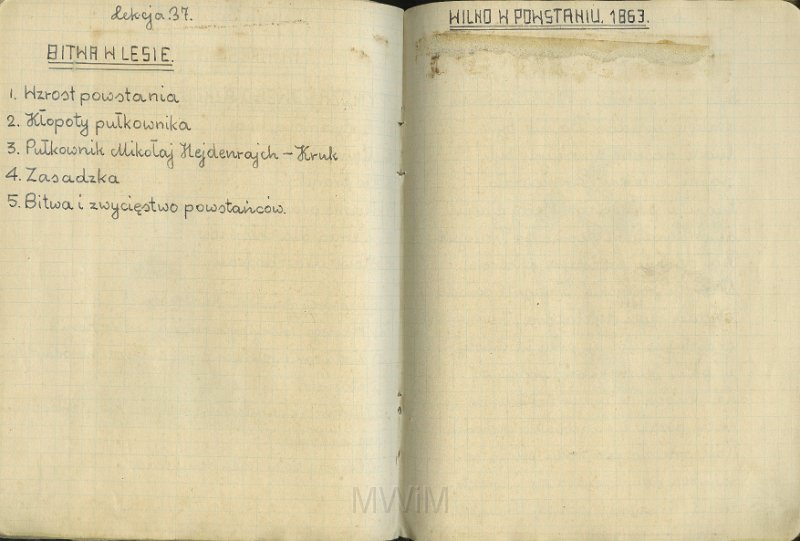 Lekcja 37.
BITWA W LESIE.
1. Wzrost powstania
2. Kłopoty pułkownika
3. Pułkownik Mikołaj Hejdenrajch – Kruk
4. Zasadzka
5. Bitwa i zwycięstwo powstańców.
WILNO W POWSTANIU, 1863.
MWiM